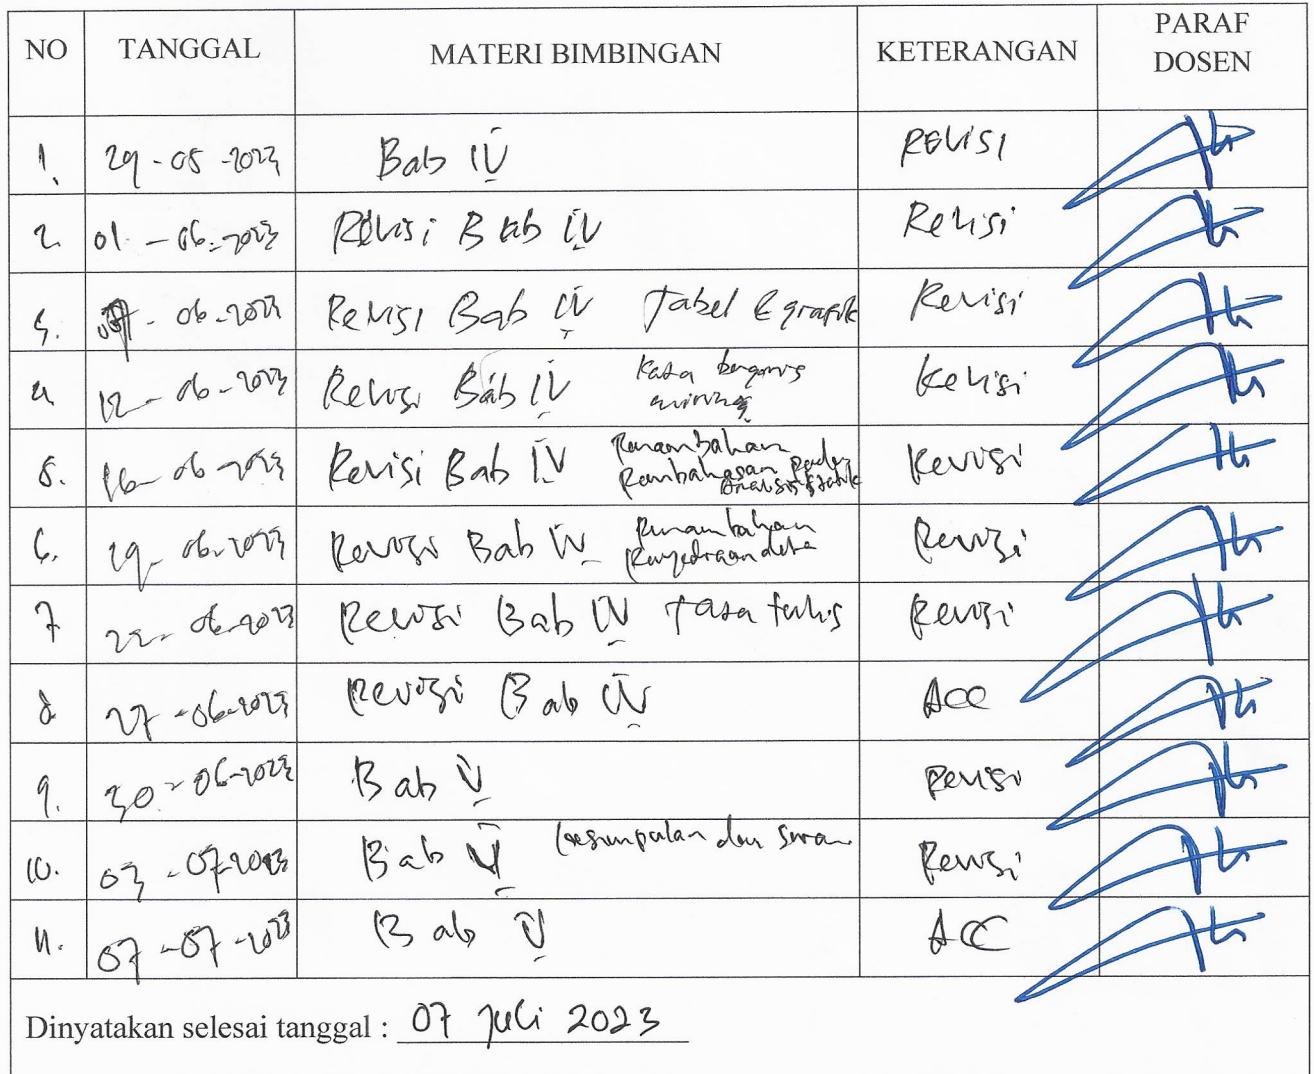 NO TANGGAL MATERI BIMBINGAN KETERANGAN PARAF DOSEN
1. 29-05-2023 Bab IV REVISI
2. 01-06-2023 Revisi Bab IV Revisi
3. 07-06-2023 Revisi Bab IV Tabel & grafik Revisi
4. 12-06-2023 Revisi Bab IV Kata bergaris miring Revisi
5. 16-06-2023 Revisi Bab IV Penambahan Pembahasan pada analisis statik Revisi
6. 19-06-2023 Revisi Bab IV Penambahan Penyediaan data Revisi
7 22-06-2023 Revisi Bab IV Tata tulis Revisi
8. 27-06-2023 Revisi Bab IV ACC
9. 30-06-2023 Bab V Revisi
10. 03-07-2023 Bab V kesimpulan dan saran Revisi
11. 07-07-2023 Bab V ACC
Dinyatakan selesai tanggal : 07 Juli 2023